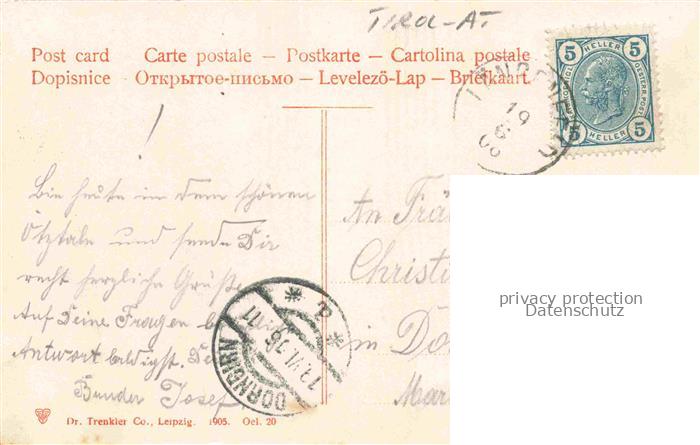 Tirol-AT
Post card Carte postale – Postkarte – Cartolina postale
Dopisnice – Открытое-письмо – Levelező-Lap – Briefkaart.
5 HELLER 5
5 HELLER 5
19
6
06
!
Bin heute in dem schönen
Ötztale und sende Dir
recht herzliche Grüße
Auf Deine Fragen
Antwort baldigst.
Bunder Josef
An
Christi
in Do
Mar
DORNBIRN
privacy protection
Datenschutz
Dr. Trenkler Co., Leipzig. 1905. Oel. 20